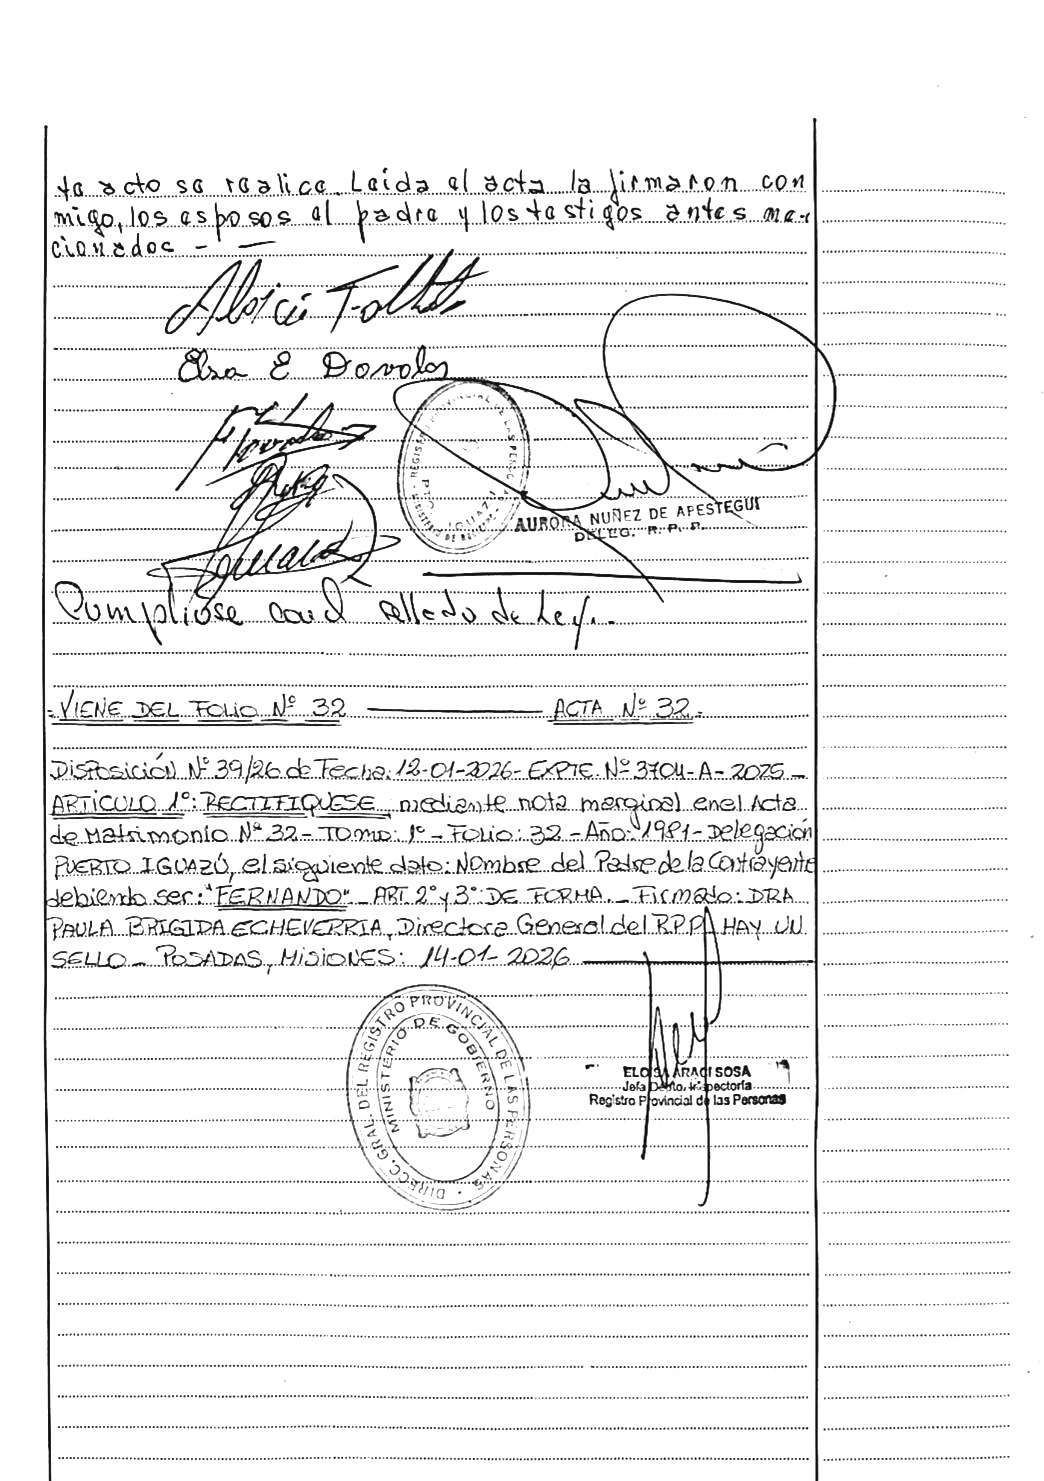 to acto se realice. Leída el acta la firmaron con
migo, los esposos el padre y los testigos antes men
cionados - —
Elsa E Dovalos
REGISTRO PROVINCIAL DE LAS PERSONAS
PTO. IGUAZU
AURORA NUÑEZ DE APESTEGUI
DELEG. R. P. P.
Cumplióse con el sellado de Ley.-
- VIENE DEL FOLIO Nº 32 ——— ACTA Nº 32.-
DISPOSICIÓN Nº 39/26 de Fecha: 12-01-2026- EXPTE. Nº 3704-A-2025 -
ARTÍCULO 1º: RECTIFIQUESE, mediante nota marginal en el Acta
de Matrimonio Nº 32 - TOMO: 1º - FOLIO: 32 - AÑO: 1981 - Delegación
PUERTO IGUAZÚ, el siguiente dato: Nombre del Padre de la Contrayente
debiendo ser: "FERNANDO" - ART 2º y 3º DE FORMA. - Firmado: DRA
PAULA BRIGIDA ECHEVERRIA, Directora General del R.P.P. HAY UN
SELLO - POSADAS, MISIONES: 14-01-2026 ———
DIRECC. GRAL. DEL REGISTRO PROVINCIAL DE LAS PERSONAS
MINISTERIO DE GOBIERNO
ELOISA ARACI SOSA
Jefa Dpto. Inspectoría
Registro Provincial de las Personas